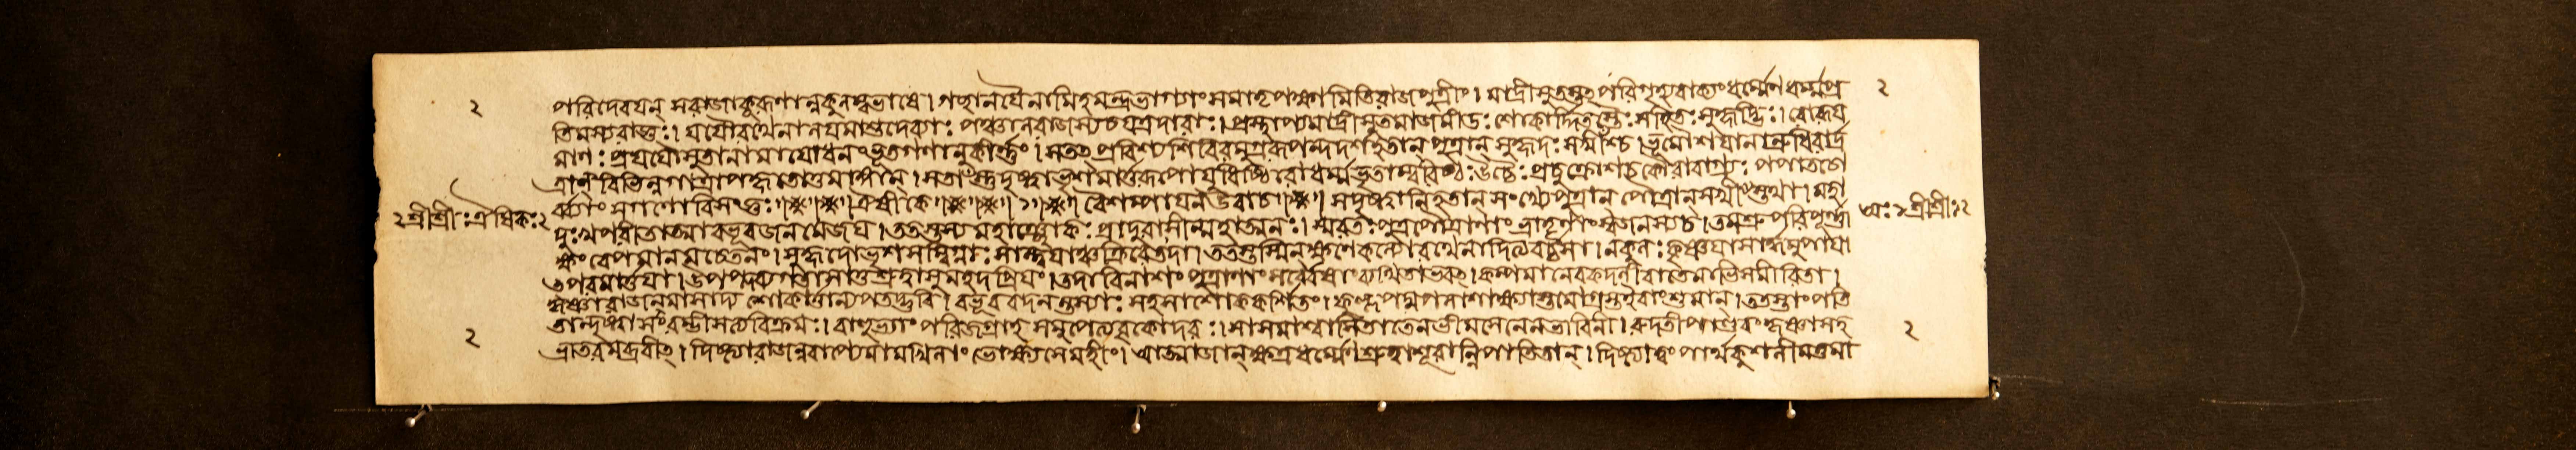 ২ পরিদেবযন্ সরাজাকুরূণান্নকুলম্বভাষে। গচ্ছানযৈনামিহমন্দ্রভাগ্যাং সমাতৃপক্ষামিতিরাজপুত্রীং। মাদ্রীসুতস্তৎ পরিগৃহ্যবাক্যংধর্ম্মেণধর্ম্মপ্র ২
তিমস্যরাজ্ঞঃ। যযৌরথেনানযমাশুদেব্যাঃ পঞ্চালরাজস্যচযত্রদারাঃ। প্রস্থাপ্যমাদ্রীসুতমাজমীঢঃ শোকার্দ্দিতস্তৈঃ সহিতঃ সুহৃদ্ভিঃ। রোরূয
মাণঃ প্রযযৌসুতানামাযোধনংভূতগণানুকীর্ণ্ণং। সতৎ প্রবিশ্যশিবিরমুগ্ররূপন্দদর্শহতান্ পুত্রান্ সুহৃদঃ সখীংশ্চ। ভূমৌশযানান্রুধিরার্দ্র
গাত্রান্ বিভিন্নগাত্রাপহৃতোত্তমাঙ্গান্। সতাংস্তুদৃষ্ট্বাভৃশমার্ত্তরূপোযুধিষ্ঠিরোধর্ম্মভৃতাম্বরিষ্ঠঃ উচ্চৈঃ প্রচুক্রোশচকৌরবাগ্র্যঃ পপাতচো
২ শ্রীশ্রীঃ ঐষিকঃ ২ র্ব্ব্যাং সগণোবিসংজ্ঞঃ ঐষীকে ১ বৈশম্পাযনউবাচ। সদৃষ্ট্বানিহতান্ সংখ্যেপুত্রান্ পৌত্রান্সখীংস্তথা। মহা অঃ ২ শ্রীশ্রীঃ ২
দুঃখপরীতাত্মাবভূবজনমেজয। ততস্তস্যমহাঞ্ছোকঃ প্রাদুরাসীন্মহাত্মনঃ। স্মরতঃ পুত্রপৌত্রাণাং ভ্রাতৃণাংস্বজনস্যচ। তমশ্রুপরিপূর্ণ্ণা
ক্ষং বেপমানমচেতনং। সুহৃদোভৃশসম্বিগ্নাঃ সান্ত্বযাঞ্চক্রিরেতদা। ততস্তস্মিন্ ক্ষণেকল্যোরথেনাদিত্যবর্চ্চসা। নকুলঃ কৃষ্ণযাসার্দ্ধমুপাযা
ৎপরমার্ত্তযা। উপপ্লব্যগতাসাতুশ্রুত্বাসুমহদপ্রিযং। তদাবিনাশং পুত্রাণাং সর্ব্বেষাংব্যথিতাভবৎ। কম্পমানেবকদলীবাতেনাভিসমীরিতা।
কৃষ্ণারাজানমাসাদ্য শোকার্ত্তান্যপতদ্ভুবি। বভূববদনন্তস্যাঃ সহসাশোককর্শিতং। ফুল্লপদ্মপলাশাক্ষ্যাস্তমোগ্রস্তইবাংশুমান্। ততস্তাংপতি
তান্দৃষ্ট্বাসংরম্ভীসত্যবিক্রমঃ। বাহুভ্যাং পরিজগ্রাহ সমুপেত্যবৃকোদরঃ। সাসমাশ্বাসিতাতেনভীমসেনেনভাবিনী। রুদতীপাণ্ডবংকৃষ্ণাসহ
২ ভ্রাতরমব্রবীৎ। দিষ্ট্যারাজন্নবাপ্যেমামখিলাং ভোক্ষ্যসেমহীং। আত্মজান্ক্ষত্রধর্ম্মেণশ্রুত্বাশূরান্নিপাতিতান্। দিষ্ট্যাত্বংপার্থকুশলীমত্তমা ২